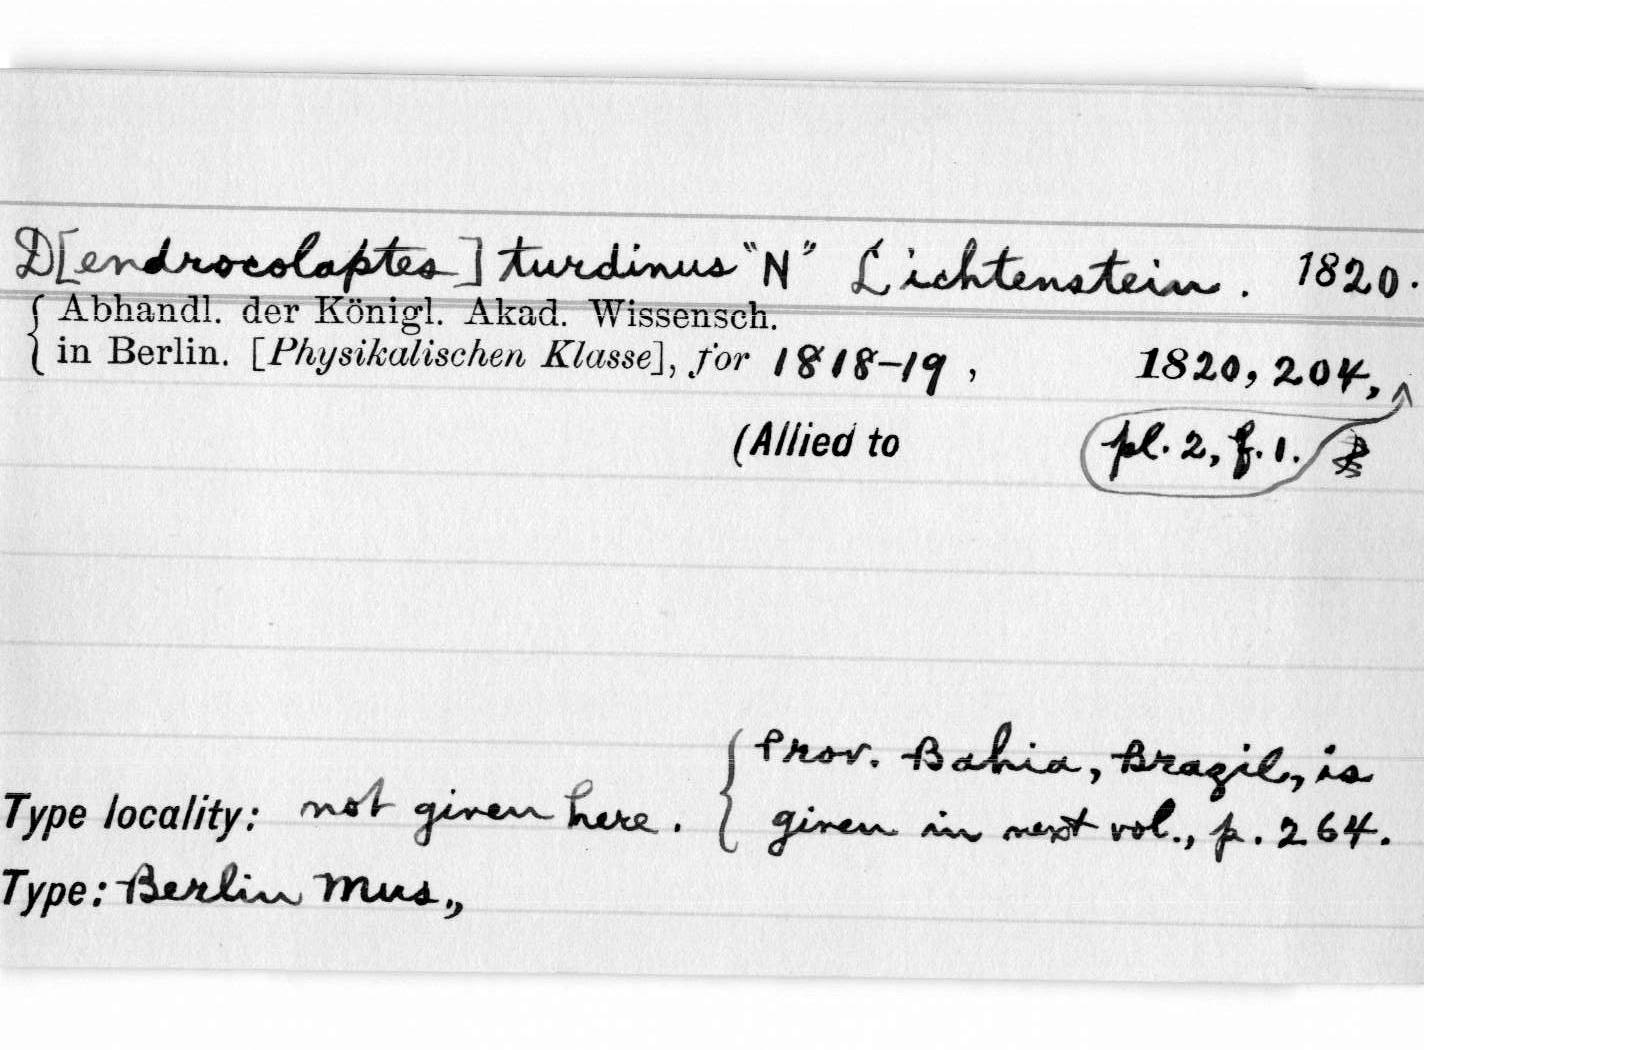 D[endrocolaptes] turdinus "N" Lichtenstein. 1820.
Abhandl. der Königl. Akad. Wissensch.
in Berlin. [Physikalischen Klasse], for 1818-19, 1820, 204,
(Allied to pl. 2, f. 1.
Prov. Bahia, Brazil, is
Type locality: not given here. given in next vol., p. 264.
Type: Berlin Mus.,